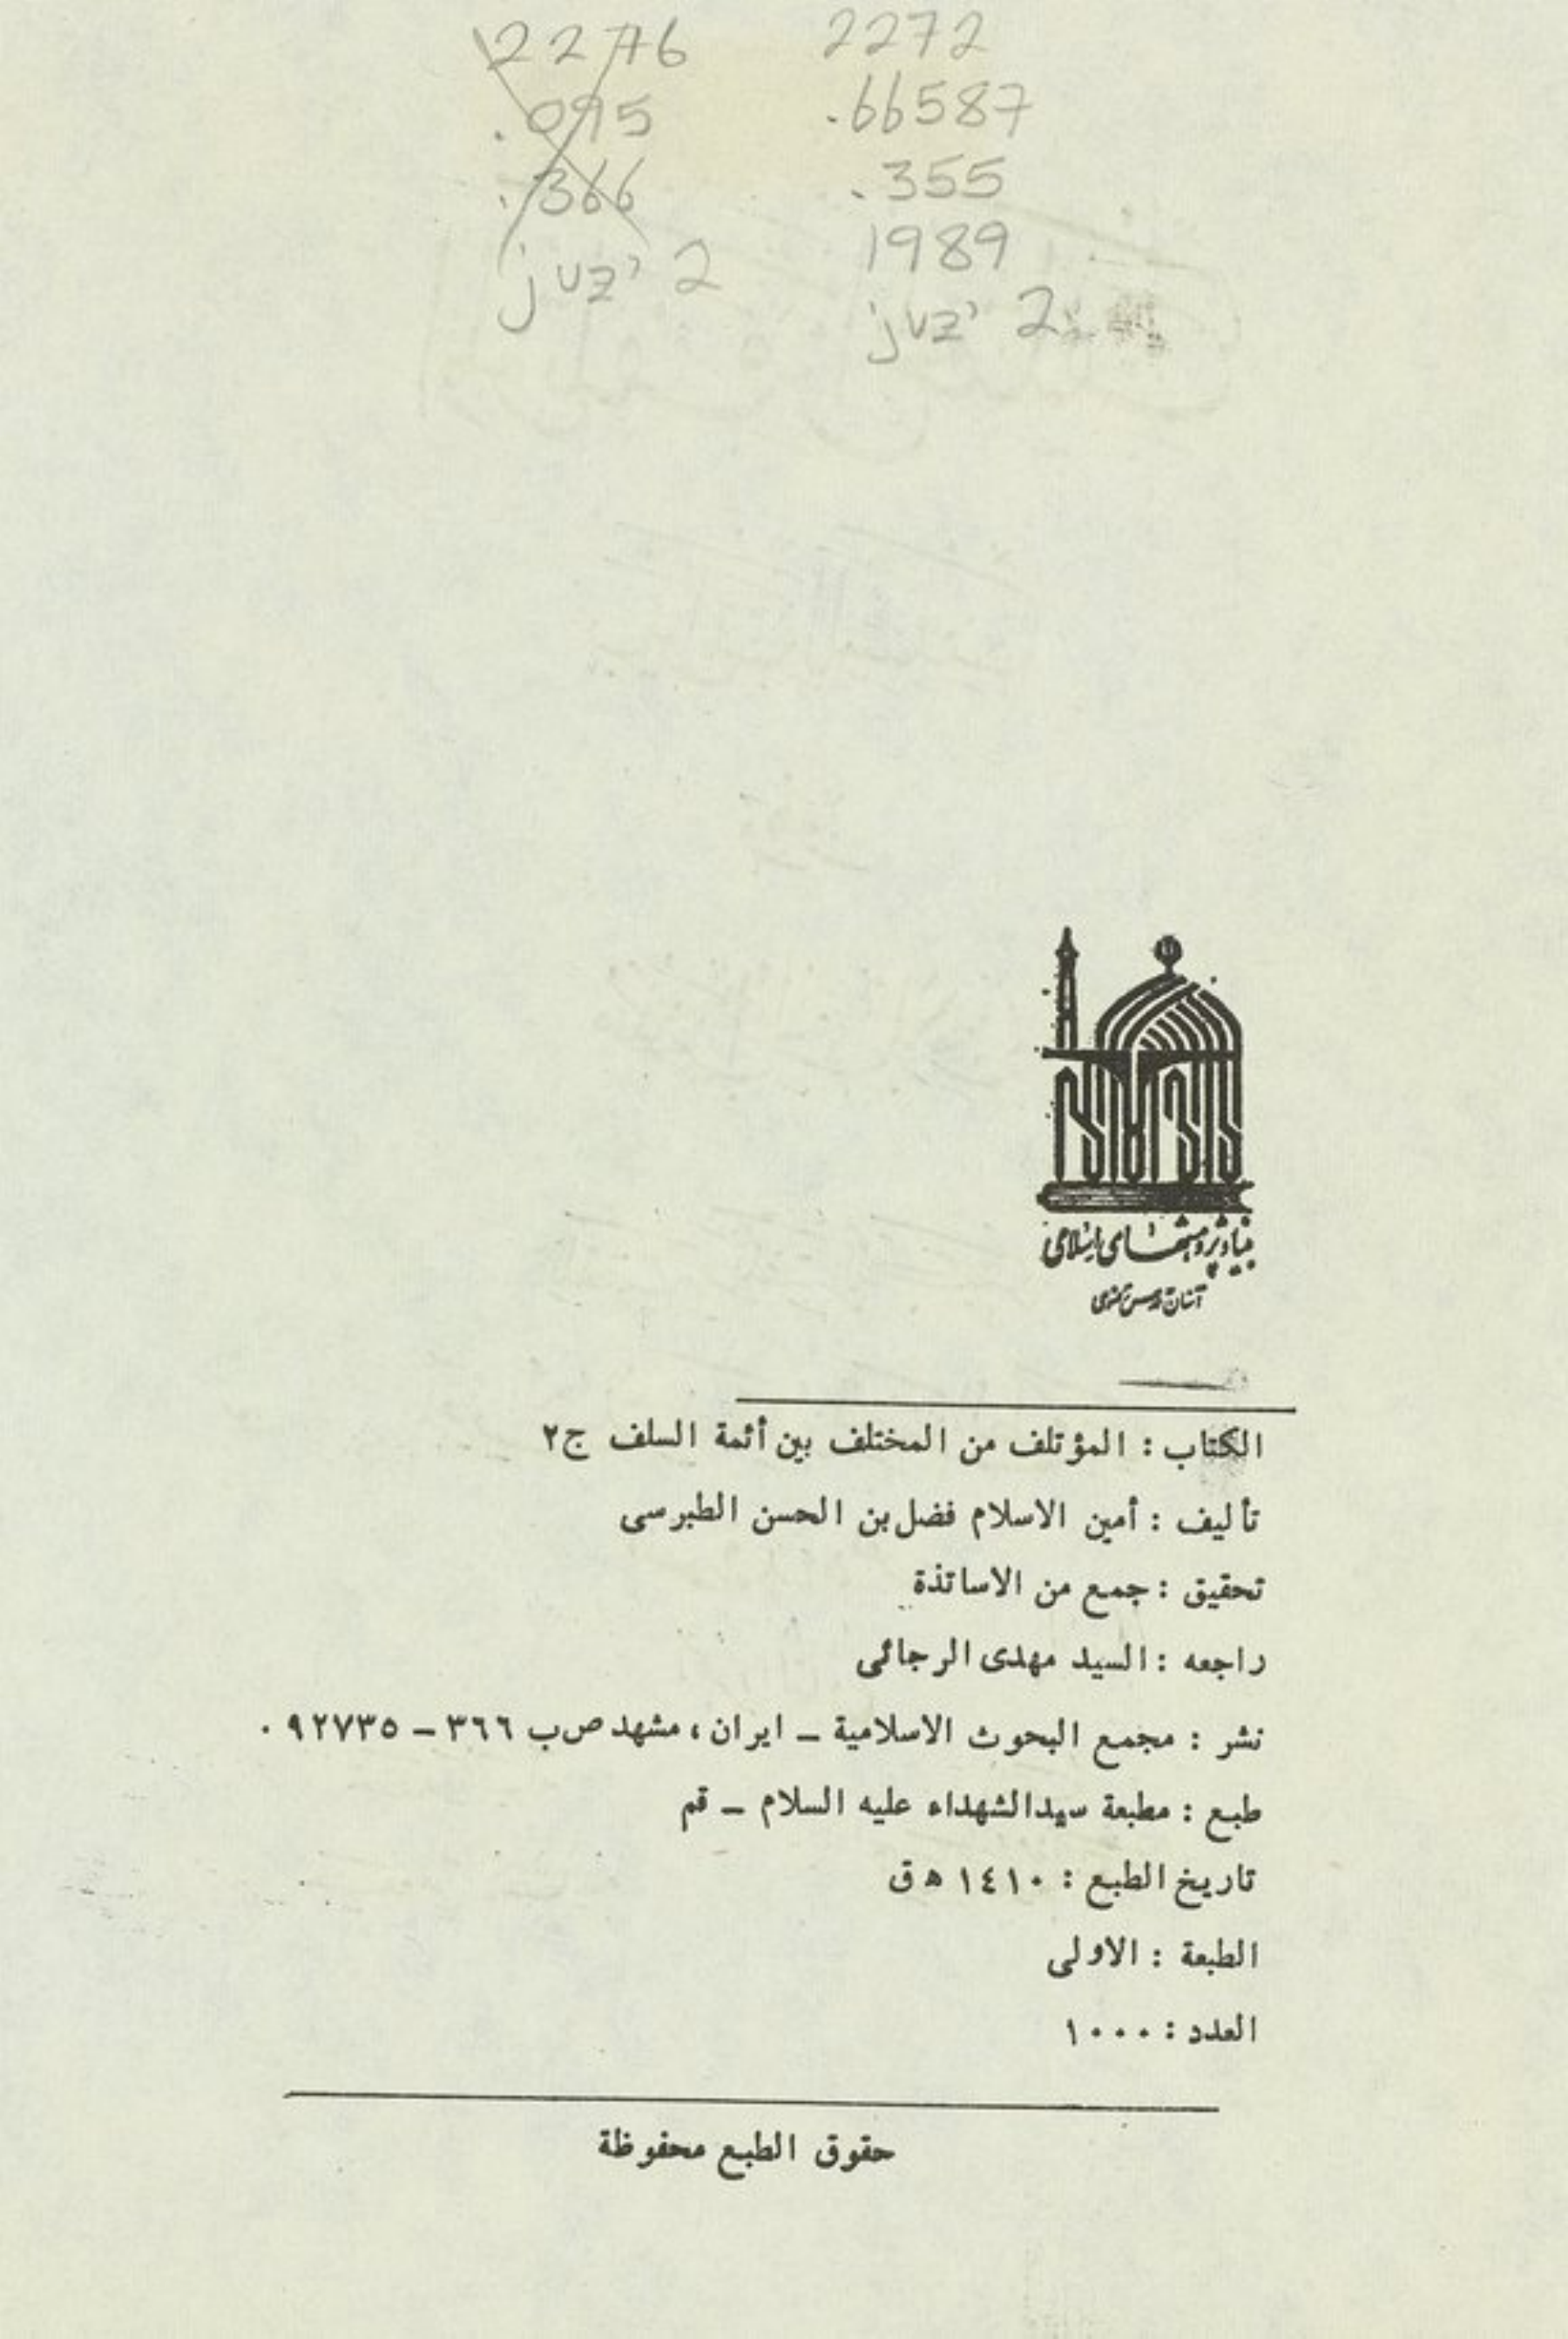 2276 2272
.095 .66587
.366 .355
juz' 2 1989
juz' 2
بنیاد پژوهشهای اسلامی
آستان قدس رضوی
الكتاب : المؤتلف من المختلف بين أئمة السلف ج٢
تأليف : أمين الاسلام فضل بن الحسن الطبرسى
تحقيق : جمع من الاساتذة
راجعه : السيد مهدى الرجائى
نشر : مجمع البحوث الاسلامية ــ ايران ، مشهد ص ب ٣٦٦ ــ ٩٢٧٣٥ .
طبع : مطبعة سيدالشهداء عليه السلام ــ قم
تاريخ الطبع : ١٤١٠ ه ق
الطبعة : الاولى
العدد : ١٠٠٠
حقوق الطبع محفوظة